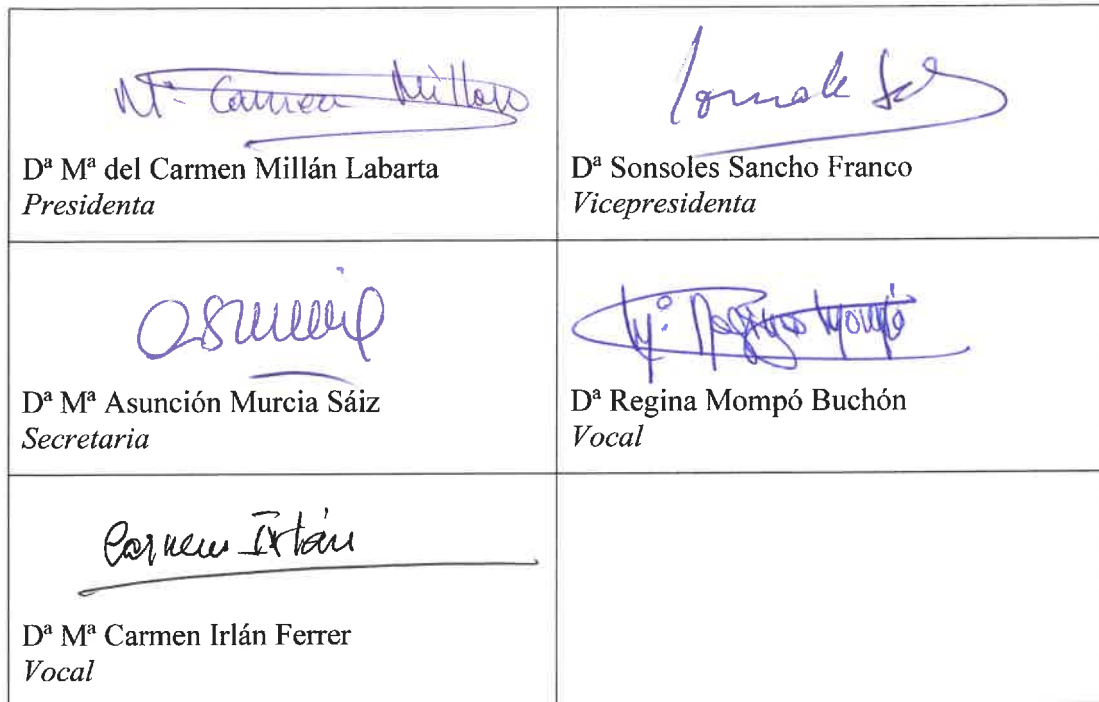 Mª Carmen Millan
Dª Mª del Carmen Millán Labarta
Presidenta
Dª Sonsoles Sancho Franco
Vicepresidenta
Dª Mª Asunción Murcia Sáiz
Secretaria
Mª Regina Mompó
Dª Regina Mompó Buchón
Vocal
Carmen Irlán
Dª Mª Carmen Irlán Ferrer
Vocal